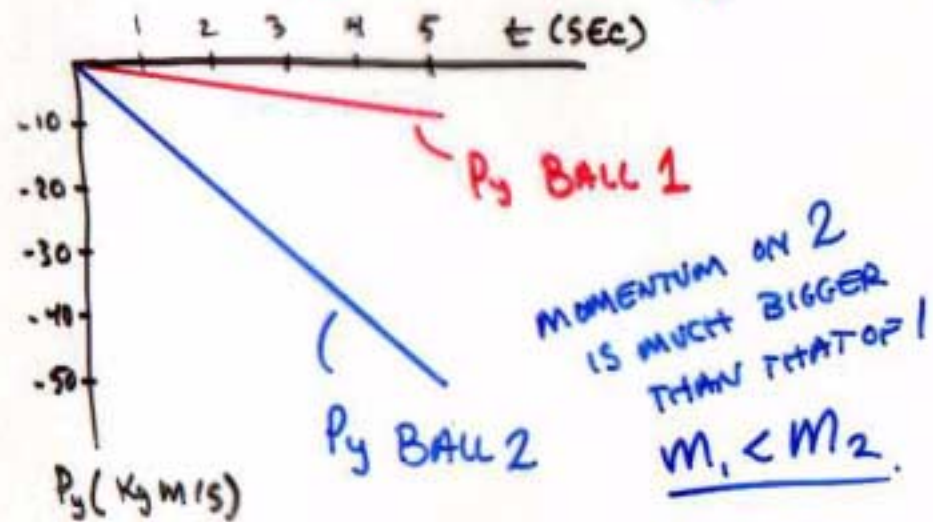 1 2 3 4 5 t (SEC)
-10
-20
-30
-40
-50
Py BALL 1
Py BALL 2
Py (Kg m/s)
MOMENTUM ON 2
IS MUCH BIGGER
THAN THAT OF 1
m₁ < m₂.